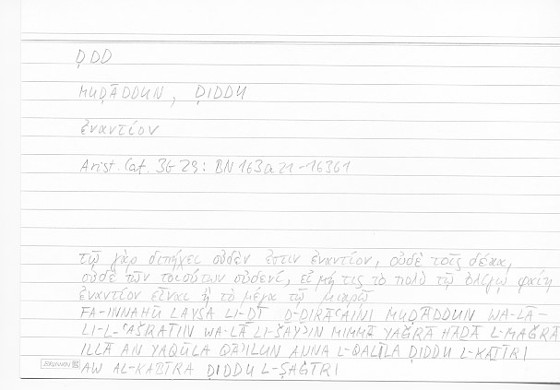 ḌDD
MUḌĀDDUN, ḌIDDU
ἐναντίον
Arist. Cat. 3b 29: BN 163a21-163b1
τῷ γὰρ διπήχει οὐδέν ἐστιν ἐναντίον, οὐδὲ τοῖς δέκα,
οὐδὲ τῶν τοιούτων οὐδενί, εἰ μή τις τὸ πολὺ τῷ ὀλίγῳ φαίη
ἐναντίον εἶναι ἢ τὸ μέγα τῷ μικρῷ
FA-INNAHŪ LAYSA LI-ḎĪ Ḏ-ḎIRĀʿAINI MUḌĀDDUN WA-LĀ-
LI-L-ʿAŠRATIN WA-LĀ LI-ŠAYʾIN MIMMĀ YAǦRĀ HĀḎĀ L-MAǦRĀ
ILLĀ AN YAQŪLA QĀʾILUN ANNA L-QALĪLA ḌIDDU L-KAṮĪRI
AW AL-KABĪRA ḌIDDU L-ṢAĠĪRI
BRUNNEN